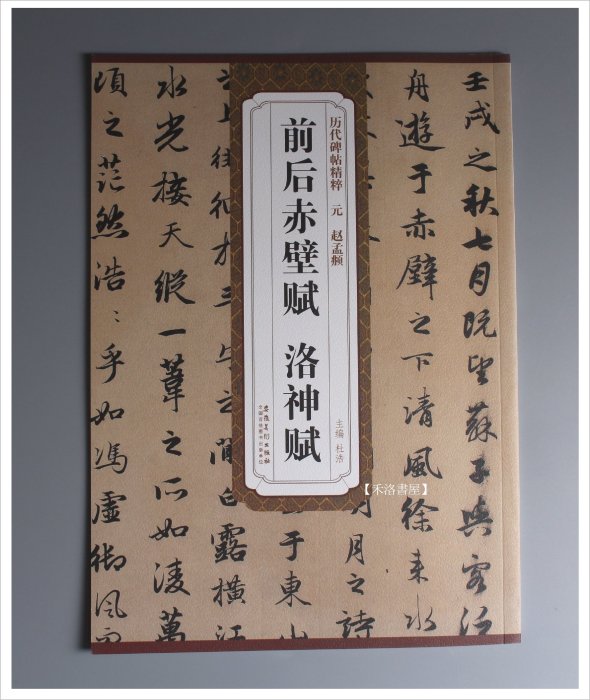 壬戌之秋七月既望蘇子與客泛
舟遊于赤壁之下清風徐来水
月之詩
于東山
之間白露橫江
水光接天縱一葦之所如凌萬
頃之茫然浩：乎如馮虛御風而
历代碑帖精粹 元 赵孟頫
前后赤壁赋 洛神赋
主编 杜浩
安徽美术出版社
全国百佳图书出版单位
【禾洛書屋】